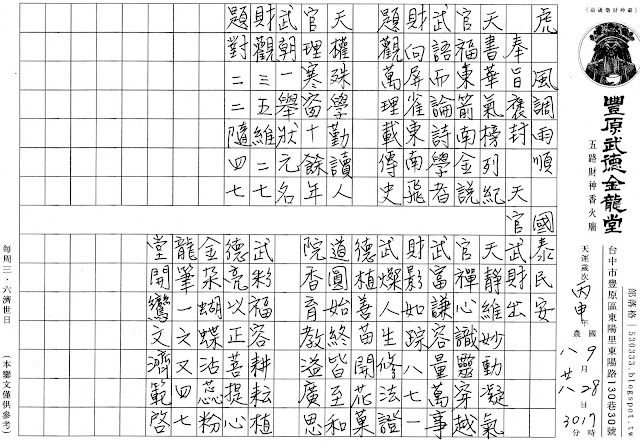 （葫蘆墩財神廟）
豐原武德金龍堂
五路財神香火廟
部落格｜530333.blogspot.tw
台中市豐原區東陽里東陽路130巷30號
天運歲次丙申年 國 農 9月28日17時30分 八 廿八
虎 風調雨順
國泰民安
奉旨褒封 天官
武財出妙動凝氣
天書華氣榜列紀
官福東箭南金說
武語而論詩學者
財向屏雀東南飛
題觀萬理載傳史
天權殊學勤讀人
官理寒窗十餘年
武朝一舉狀元名
財觀三五維二七
題對二二隨四七
天靜維識靈穿越
官禪心容量萬事
武富謙踪八七一
財影如生修法證
武燥人苗開花菓
德植善終皆至和
道圓始教溢廣思
院香育
武彩福容耕耘植
德亮以正菩提心
金朶蝴蝶沾蕊粉
龍筆一六又四七
堂開鸞文濟範啓
每周三、六濟世日
（本鑾文僅供參考）